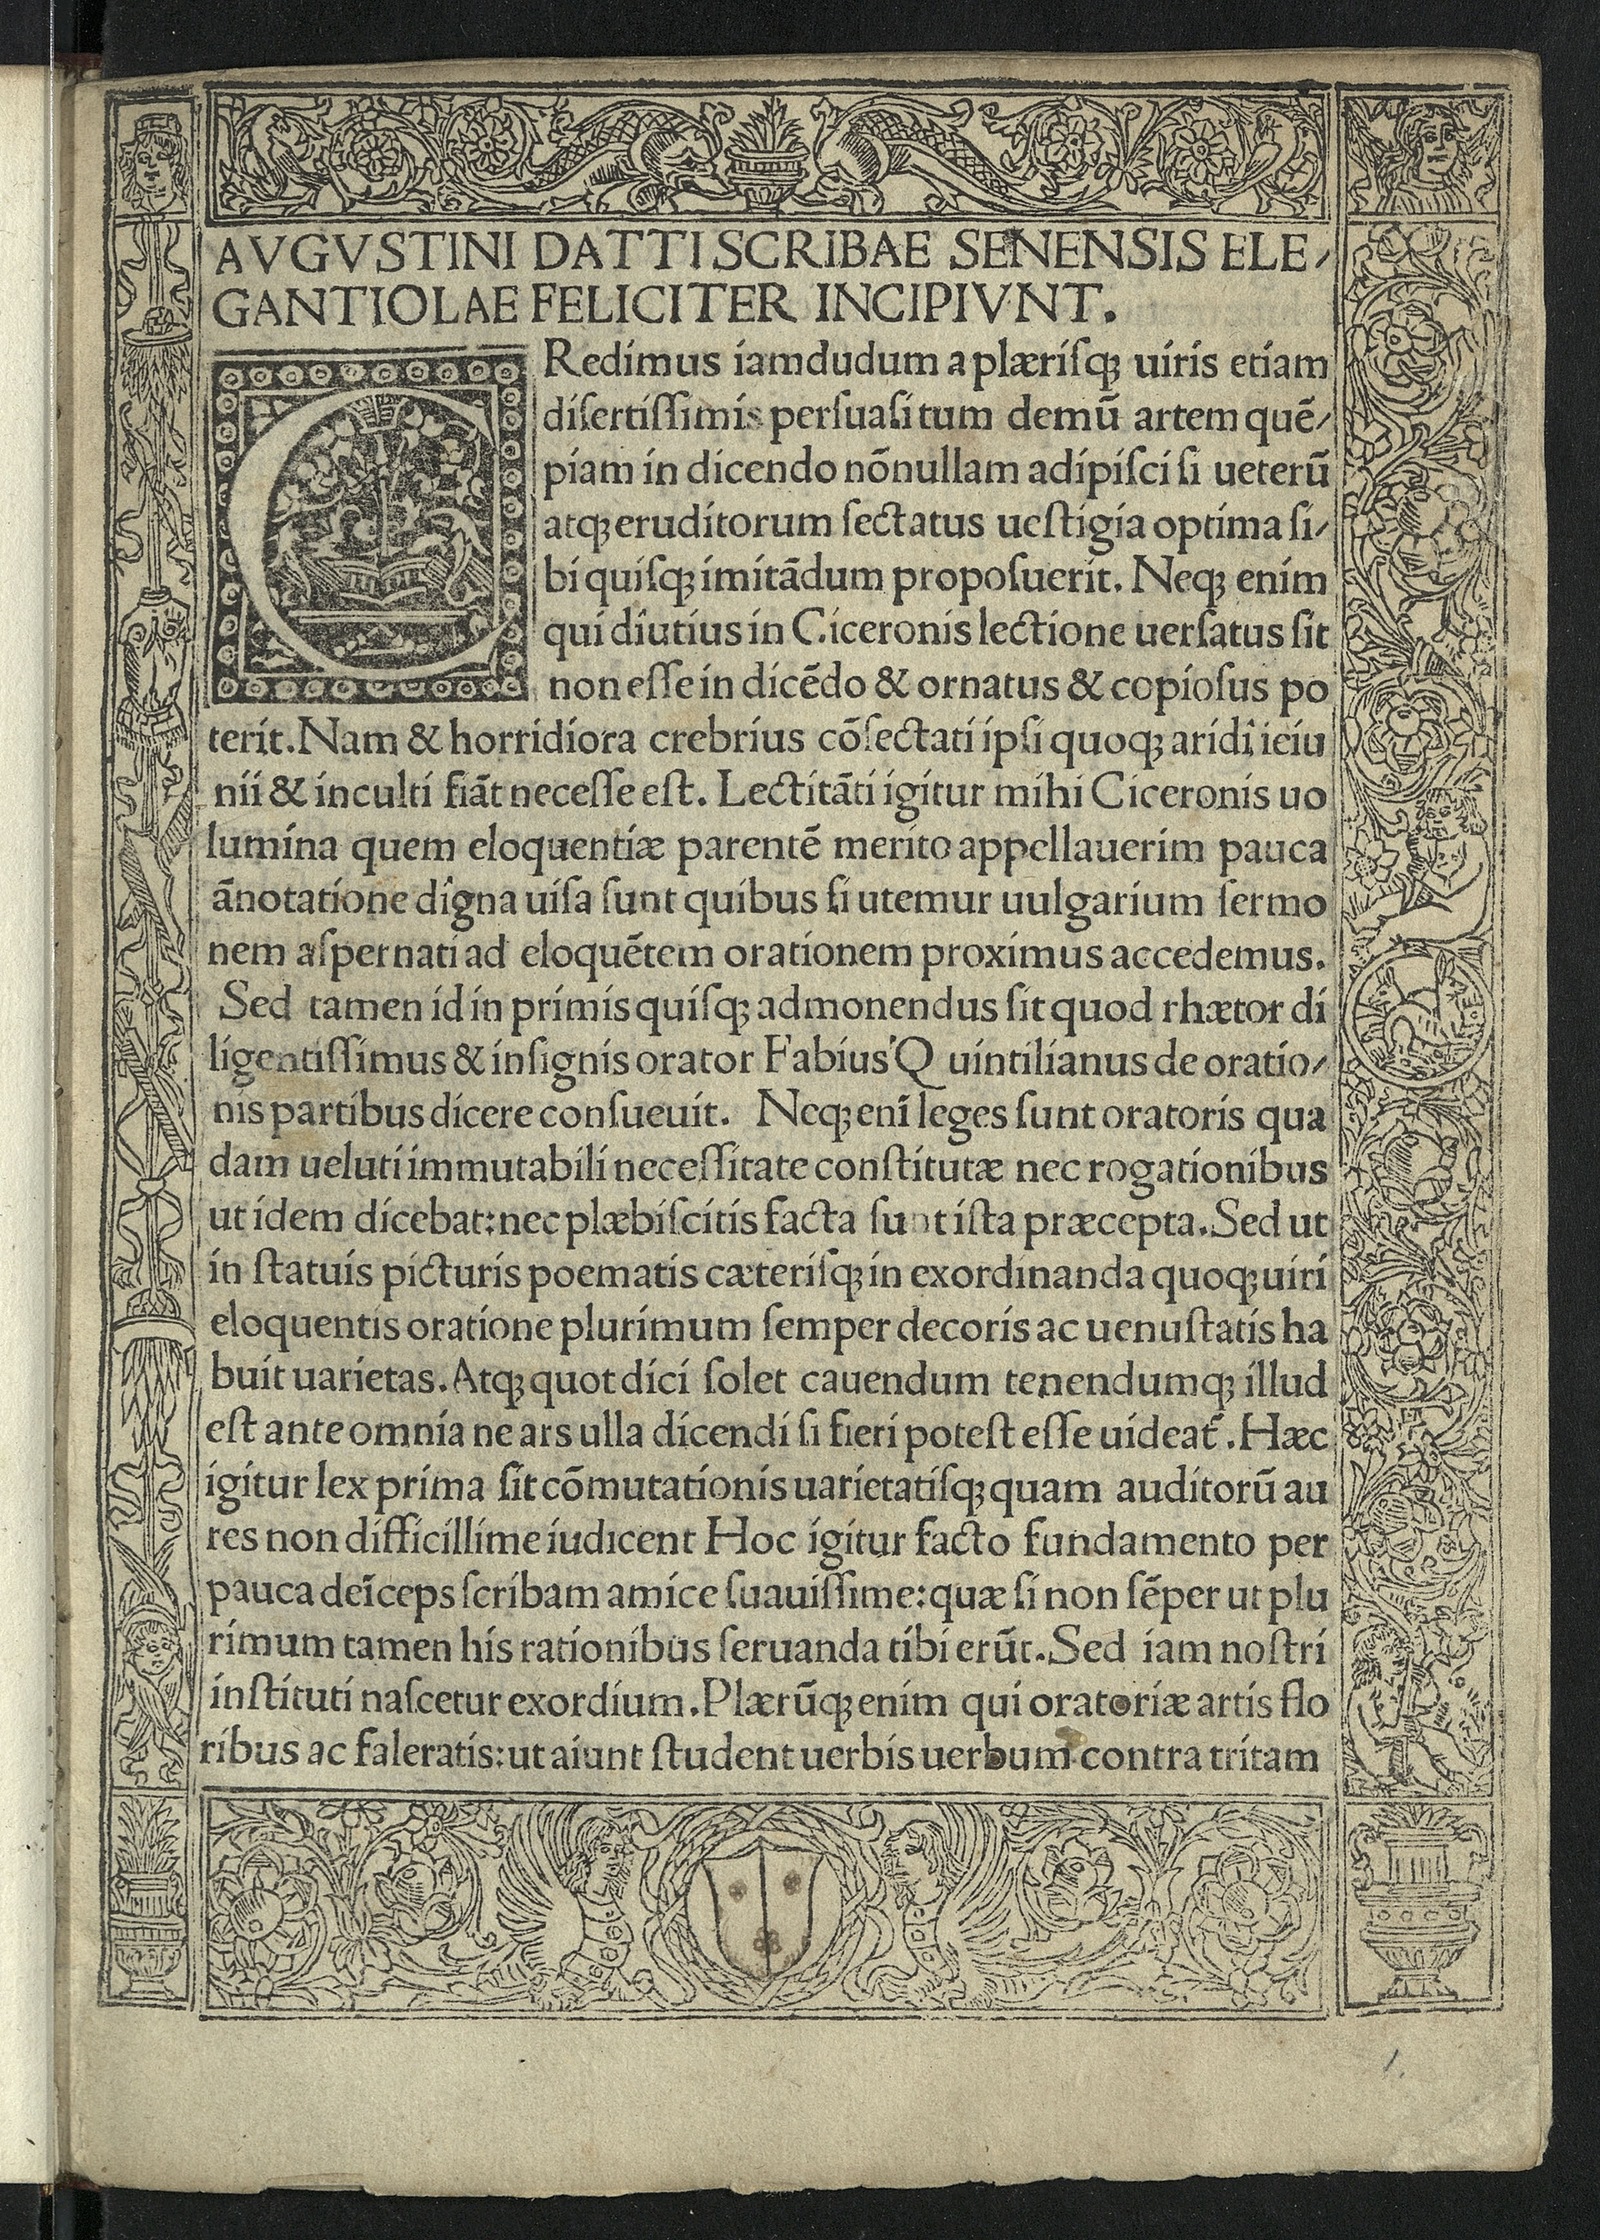 AVGVSTINI DATTI SCRIBAE SENENSIS ELE-
GANTIOLAE FELICITER INCIPIVNT.
CRedimus iamdudum a plæriſqꝫ uiris etiam
diſertiſſimis perſuaſi tum demū artem quē-
piam in dicendo nōnullam adipiſci ſi ueterū
atqꝫ eruditorum ſectatus ueſtigia optima ſi-
bi quiſqꝫ imitādum propoſuerit. Neqꝫ enim
qui diutius in Ciceronis lectione uerſatus ſit
non eſſe in dicēdo & ornatus & copioſus po
terit. Nam & horridiora crebrius cōſectati ipſi quoqꝫ aridi ieiu
nii & inculti fiāt neceſſe eſt. Lectitāti igitur mihi Ciceronis uo
lumina quem eloquentiæ parentē merito appellauerim pauca
ānotatione digna uiſa ſunt quibus ſi utemur uulgarium ſermo
nem aſpernati ad eloquētem orationem proximus accedemus.
Sed tamen id in primis quiſqꝫ admonendus ſit quod rhætor di
ligentiſſimus & inſignis orator Fabius Quintilianus de oratio-
nis partibus dicere conſueuit. Neqꝫ enī leges ſunt oratoris qua
dam ueluti immutabili neceſſitate conſtitutæ nec rogationibus
ut idem dicebat: nec plæbiſcitis facta ſunt iſta præcepta. Sed ut
in ſtatuis picturis poematis cæteriſqꝫ in exordinanda quoqꝫ uiri
eloquentis oratione plurimum ſemper decoris ac uenuſtatis ha
buit uarietas. Atqꝫ quot dici ſolet cauendum tenendumqꝫ illud
eſt ante omnia ne ars ulla dicendi ſi fieri poteſt eſſe uideat̃. Hæc
igitur lex prima ſit cōmutationis uarietatiſqꝫ quam auditorū au
res non difficillime iudicent Hoc igitur facto fundamento per
pauca deīceps ſcribam amice ſuauiſſime: quæ ſi non ſēper ut plu
rimum tamen his rationibus ſeruanda tibi erūt. Sed iam noſtri
inſtituti naſcetur exordium. Plærūqꝫ enim qui oratoriæ artis flo
ribus ac faleratis: ut aiunt ſtudent uerbis uerbum contra tritam